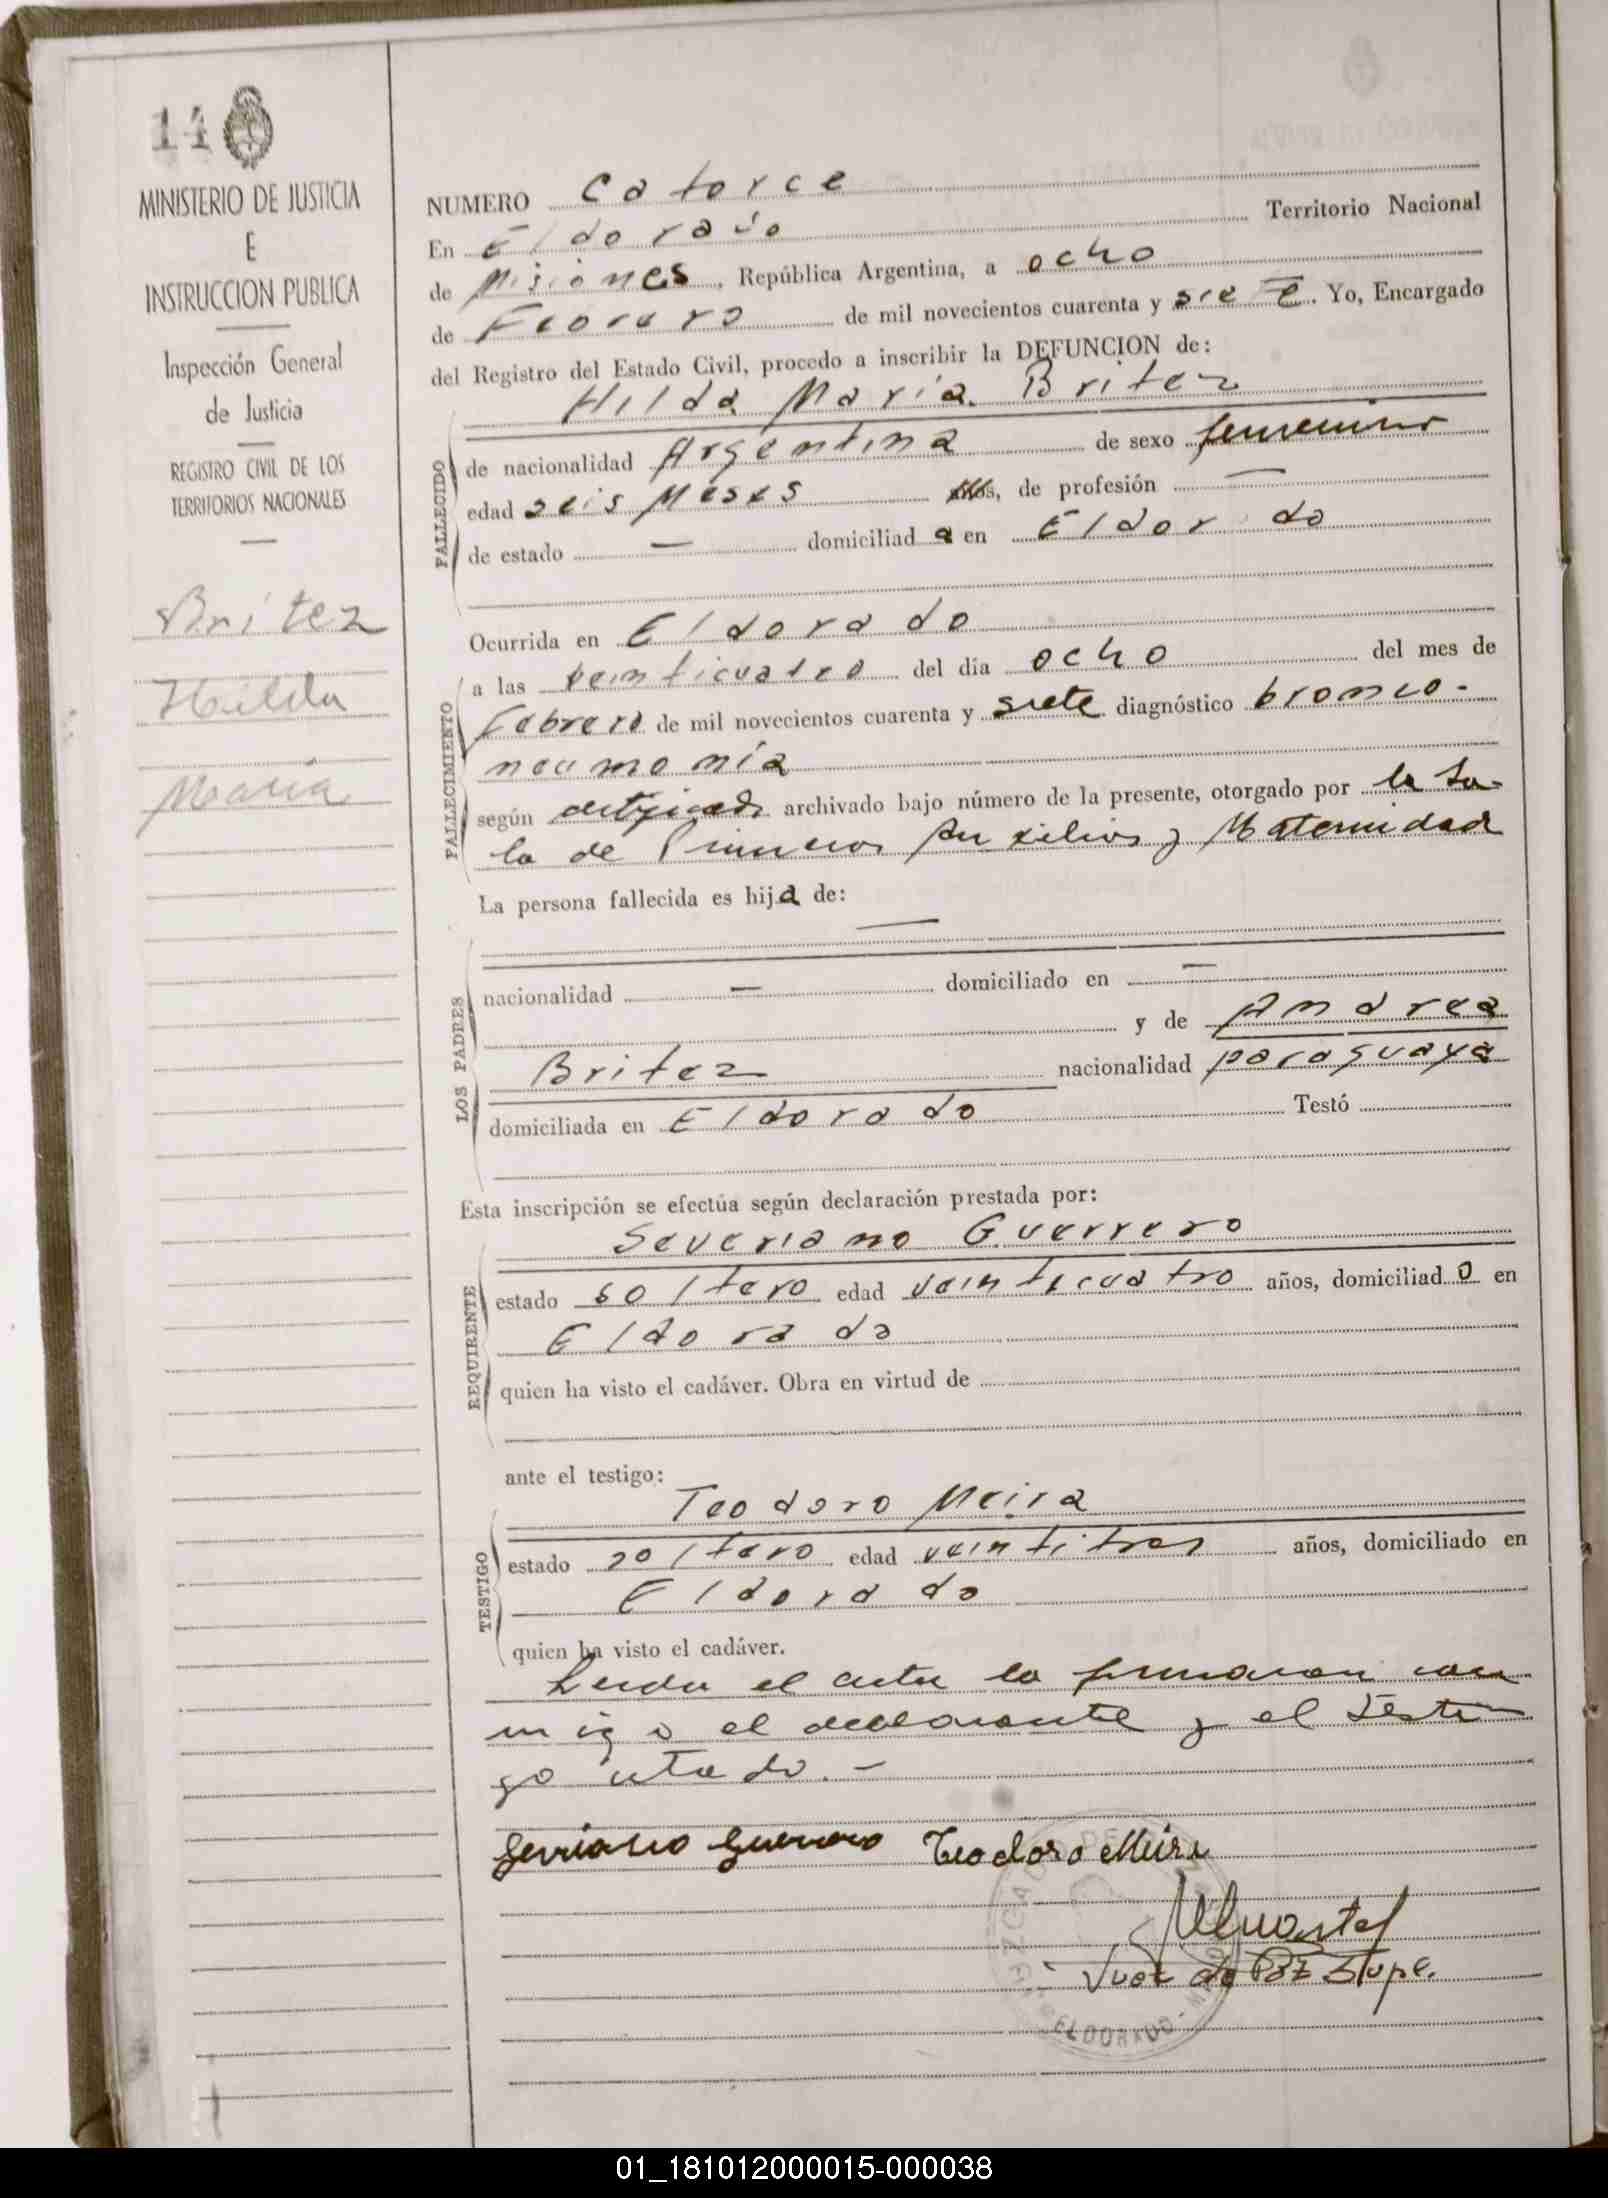 14
MINISTERIO DE JUSTICIA
E
INSTRUCCION PUBLICA
Inspección General
de Justicia
REGISTRO CIVIL DE LOS
TERRITORIOS NACIONALES
Britez
Hilda
María
NUMERO Catorce
En Eldorado Territorio Nacional
de Misiones, República Argentina, a ocho
de Febrero de mil novecientos cuarenta y siete. Yo, Encargado
del Registro del Estado Civil, procedo a inscribir la DEFUNCION de:
Hilda María Britez
FALLECIDO
de nacionalidad Argentina de sexo femenino
edad seis meses años, de profesión —
de estado — domiciliada en Eldorado
FALLECIMIENTO
Ocurrida en Eldorado
a las veinticuatro del día ocho del mes de
Febrero de mil novecientos cuarenta y siete diagnóstico bronco-
neumonía
según certificado archivado bajo número de la presente, otorgado por la Sa-
la de Primeros Auxilios y Maternidad
La persona fallecida es hija de:
—
LOS PADRES
nacionalidad — domiciliado en —
y de Andrea
Britez nacionalidad paraguaya
domiciliada en Eldorado Testó
Esta inscripción se efectúa según declaración prestada por:
Severiano Guerrero
REQUIRENTE
estado soltero edad veinticuatro años, domiciliado en
Eldorado
quien ha visto el cadáver. Obra en virtud de
ante el testigo:
Teodoro Meira
TESTIGO
estado soltero edad veintitres años, domiciliado en
Eldorado
quien ha visto el cadáver.
Leida el acta la firmaron con
migo el declarante y el testi
go citado.-
Serviano Guerrero Teodoro Meira
Juez de Paz Supl.
JUZGADO DE PAZ
ELDORADO
01_181012000015-000038